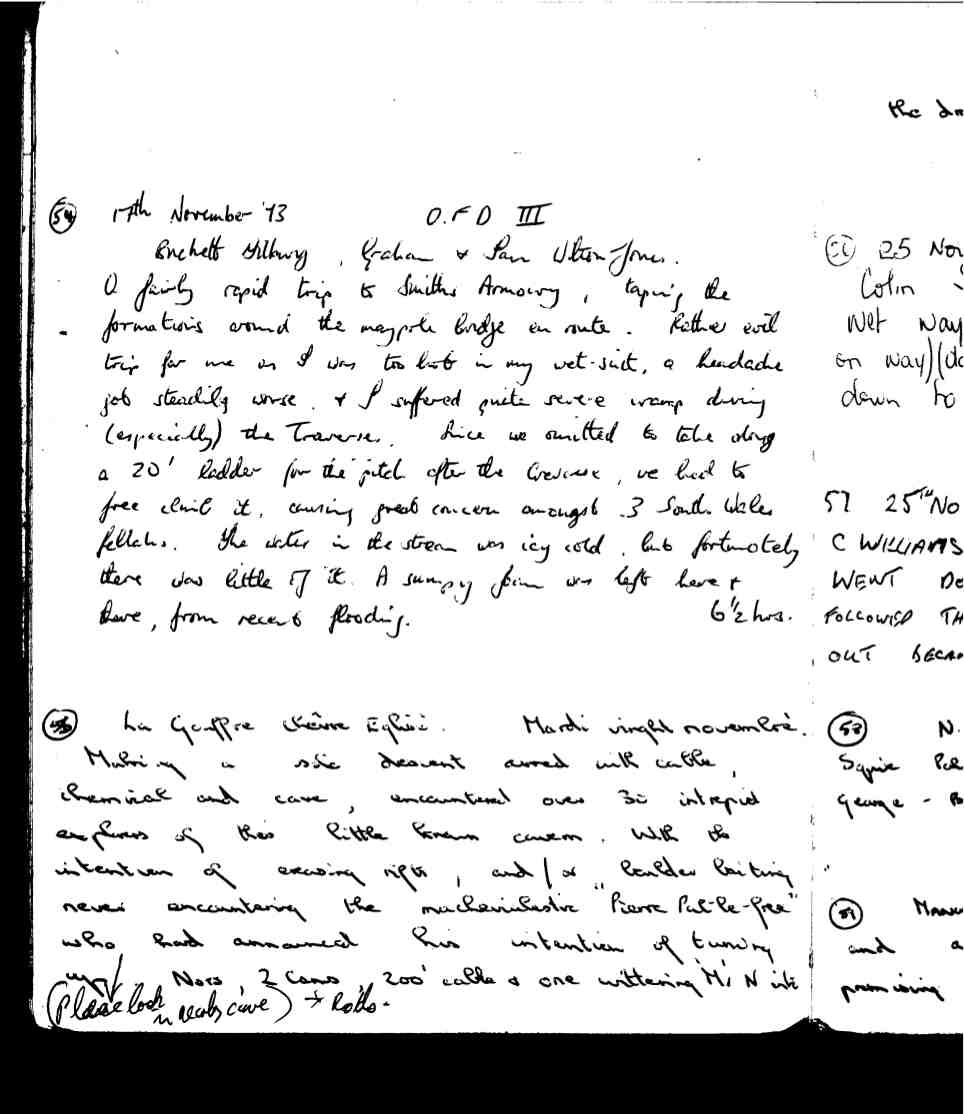 the
54 17th November '73 O.F D III
Graham & Pam Jones.
A fairly rapid trip to Smiths Armoury, taping the
formations around the maypole bridge en route. Rather evil
trip for me as I was too hot in my wet-suit, a headache
got steadily worse, & I suffered quite severe cramp during
(especially) the Traverses. Since we omitted to take along
a 20' ladder for the pitch after the Crevasse, we had to
free climb it, causing great concern amongst 3 South Wales
fellahs. The water in the stream was icy cold, but fortunately
there was little of it. A sumpy foam was left here &
there, from recent flooding. 6½ hrs.
La Gouffre Eglise. Mardi vinght novembre.
Making a descent armed with cable,
chemical and cave, encountered over 30 intrepid
explorers of this little known cavern. With the
intention of rifts, and/or boulder
never encountering the "Pierre
who had announced his intention of turning
up, 2 200' cable & one wittering
(Please look in cave) →
25 Nov
Colin
Wet Way
on way)
down to
57 25TH No
C WILLIAMS
WENT DO
FOLLOWED TH
OUT BECA
58 N.
Squire
George - B
59
and a
promising